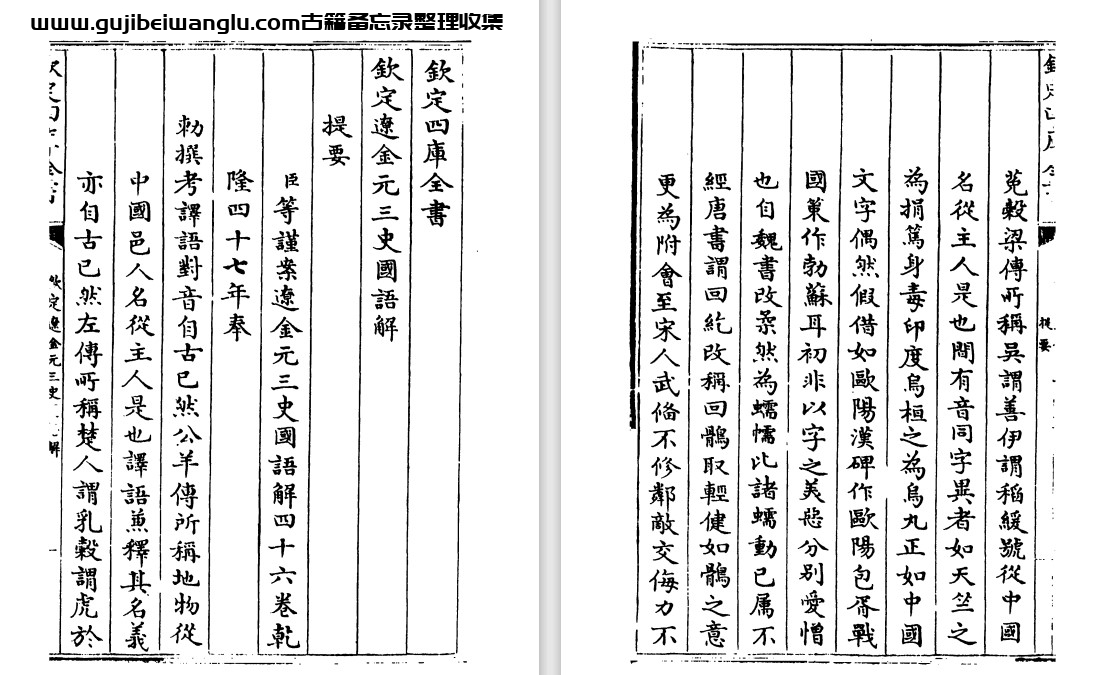 www.gujibeiwanglu.com古籍备忘录整理收集
欽定四庫全書
欽定遼金元三史國語解
提要
臣等謹案遼金元三史國語解四十六卷乾
隆四十七年奉
勅撰考譯語對音自古已然公羊傳所稱地物從
中國邑人名從主人是也譯語兼釋其名義
亦自古已然左傳所稱楚人謂乳穀謂虎於
欽定遼金元三史
解
一
提要
菟穀梁傳所稱吳謂善伊謂稻緩號從中國
名從主人是也間有音同字異者如天竺之
為捐篤身毒印度烏桓之為烏丸正如中國
文字偶然假借如歐陽漢碑作歐陽包胥戰
國策作勃蘇耳初非以字之美惡分別愛憎
也自魏書改柔然為蠕蠕比諸蠕動已属不
經唐書謂回紇改稱回鶻取輕健如鶻之意
更為附會至宋人武備不修鄰敵交侮力不